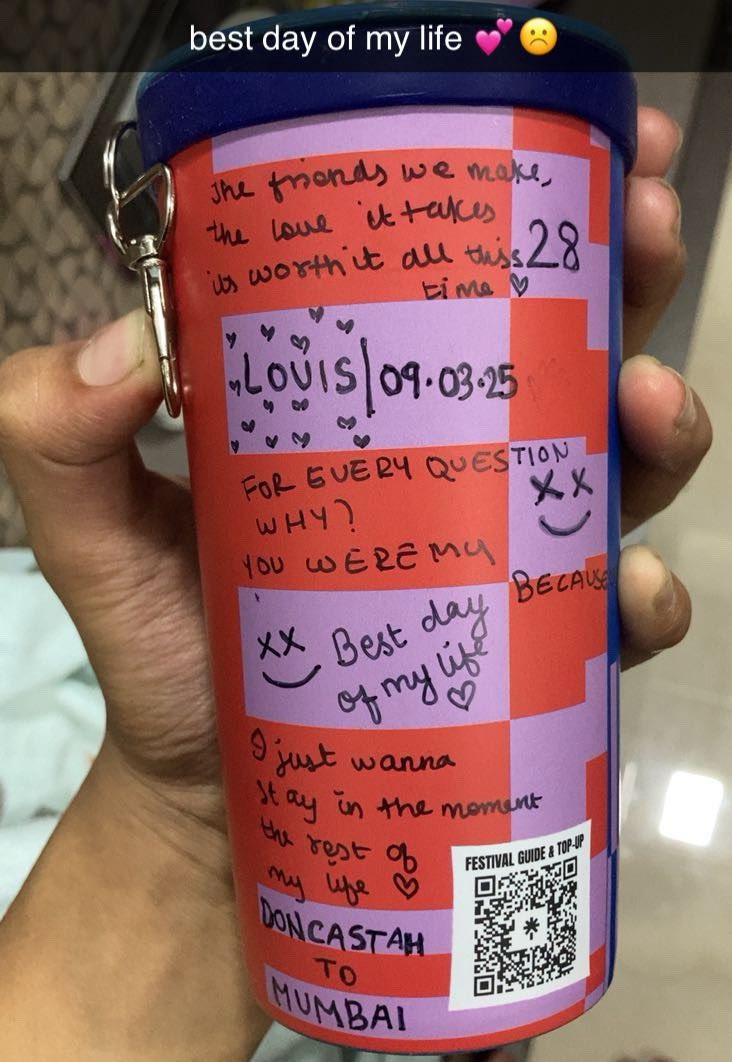 best day of my life 💕☹️
The friends we make,
the love it takes
its worth it all this
time ♡
28
LOUIS|09.03.25
FOR EVERY QUESTION
WHY?
YOU WERE MY
BECAUSE
xx
xx
Best day
of my life
♡
I just wanna
stay in the moment
the rest of
my life ♡
FESTIVAL GUIDE & TOP-UP
DONCASTAH
TO
MUMBAI